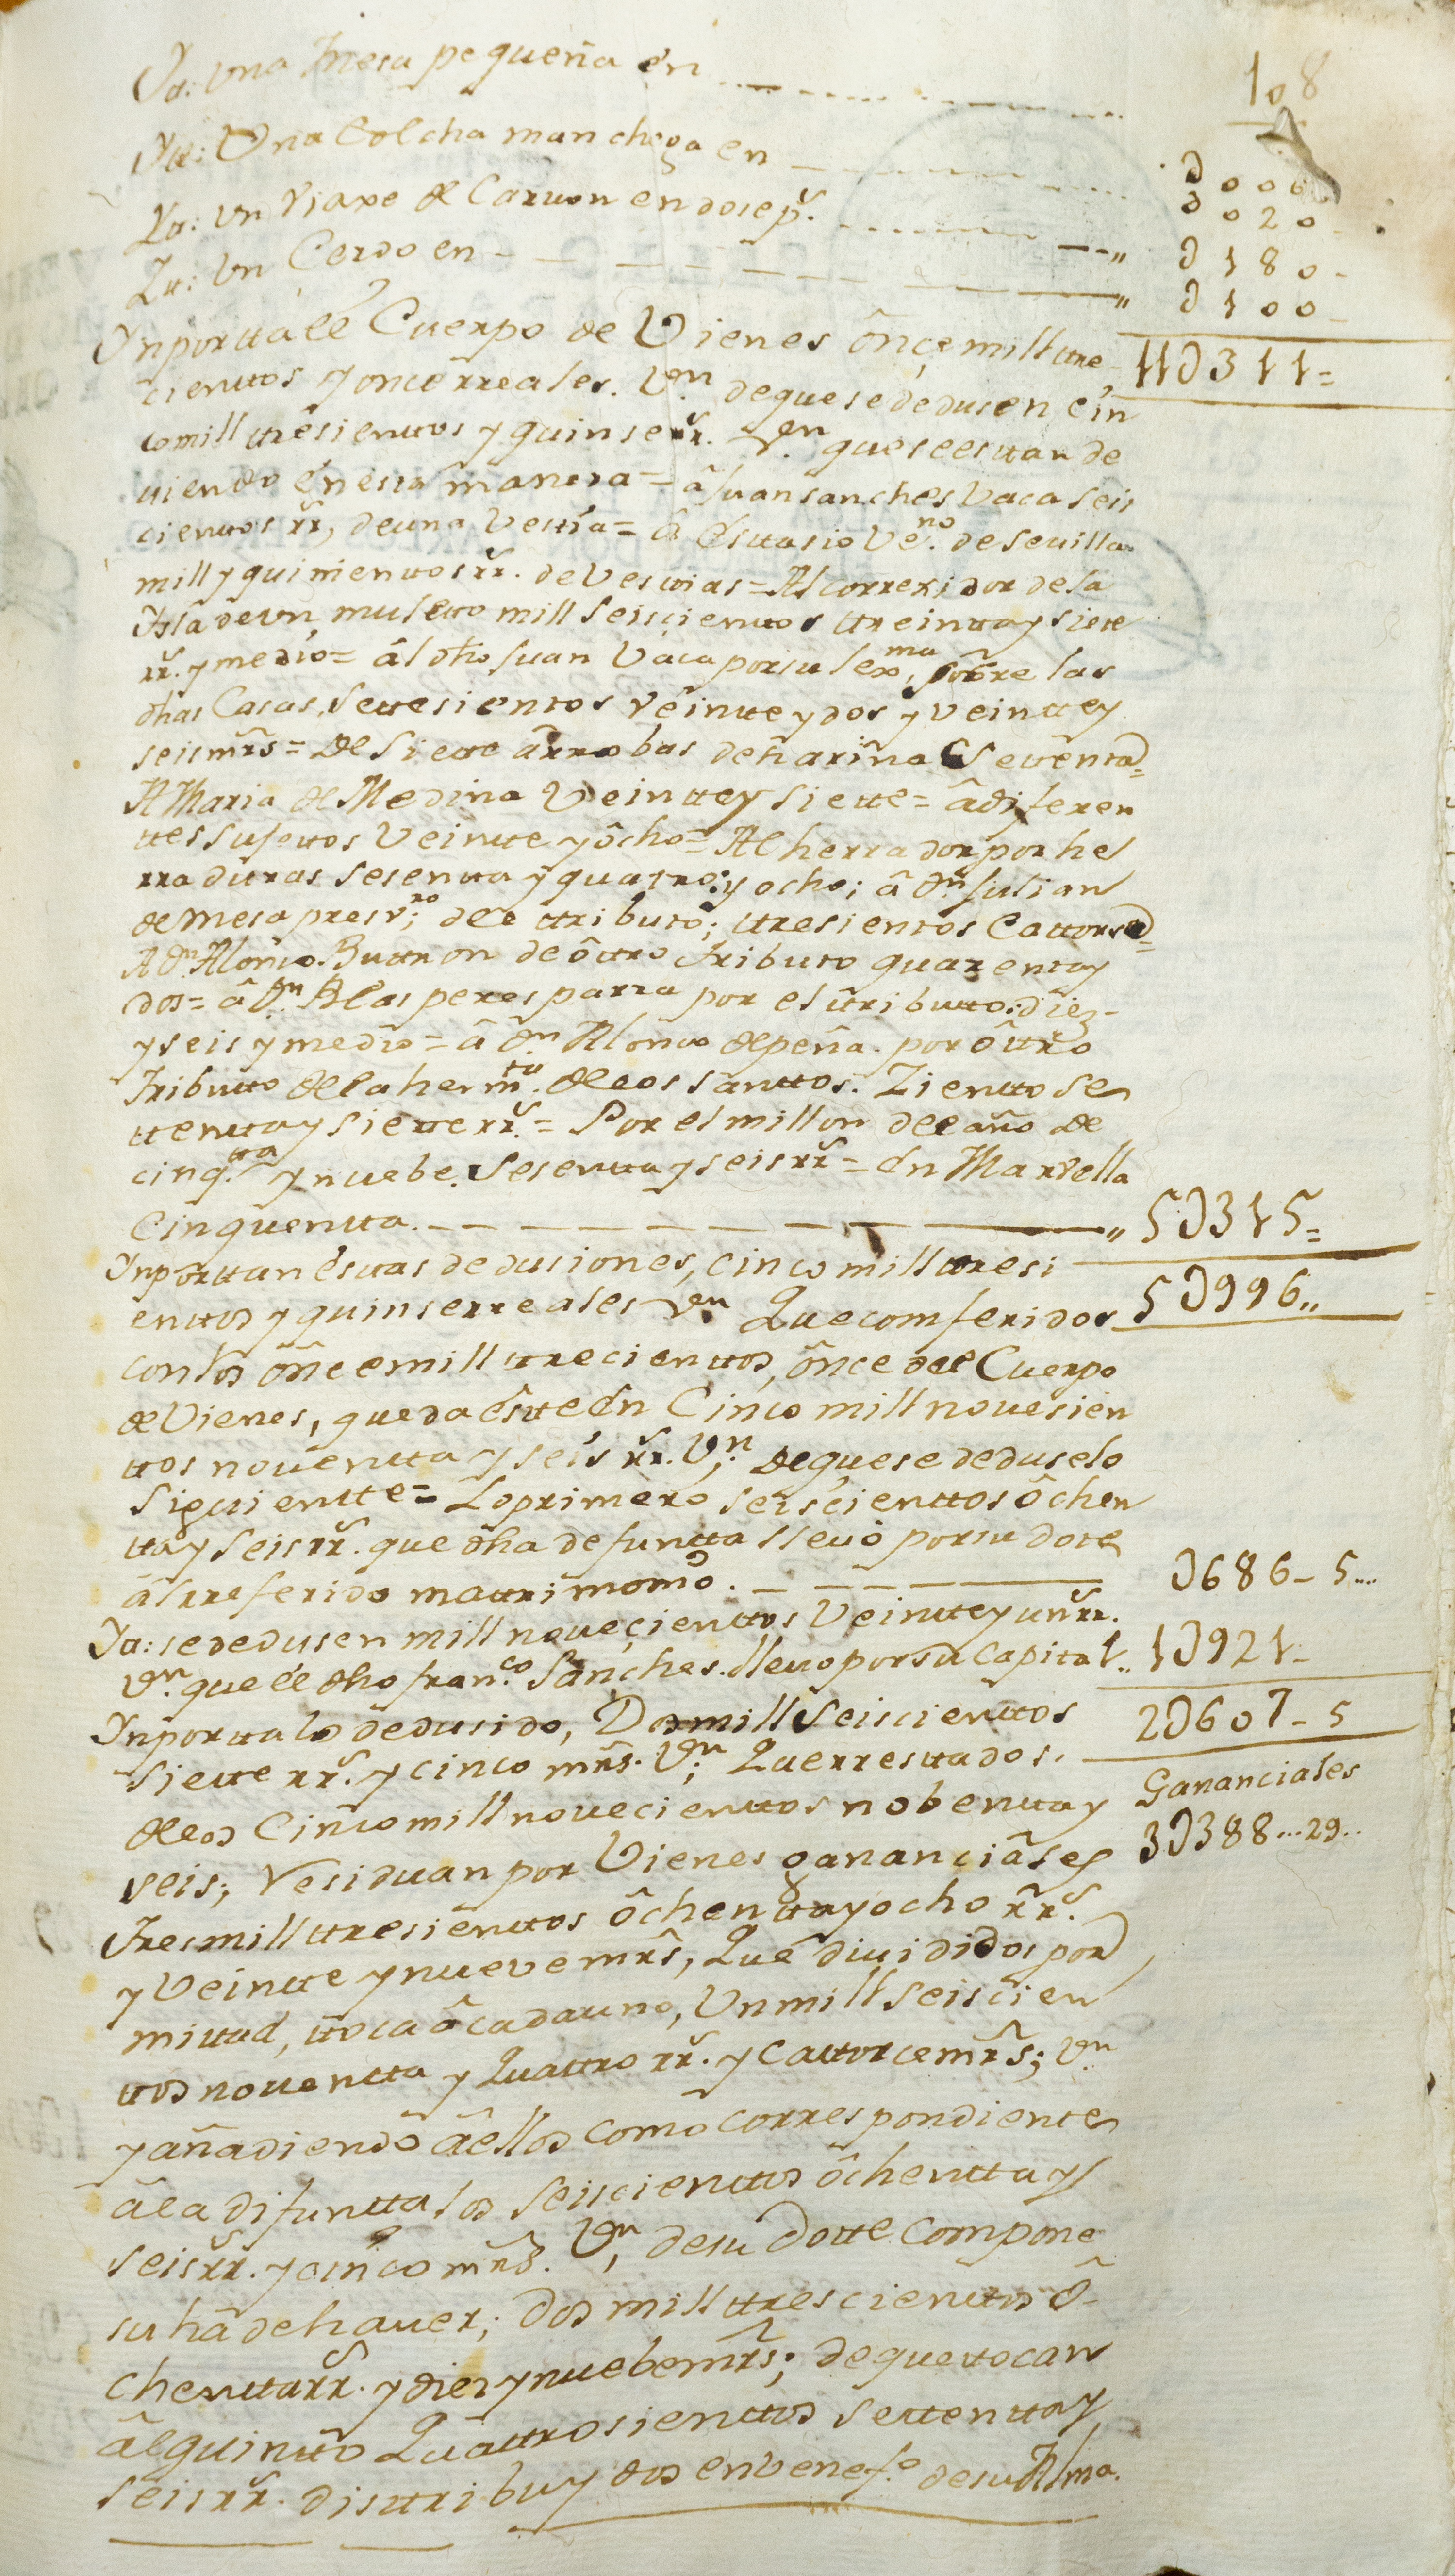 108
Yt: Una mesa pequeña en ---- U006
Yt: Una Colcha manchega en ---- U020-
Yt: Un Viaxe de Carvon en dose ps. ---- U180-
Yt: Un Cerdo en ---- U100-
Ynportta ell Cuerpo de Vienes ônce mill tre- 11U311=
cienttos y once rreales. Vn. de que se dedusen cin
co mill tresienttos y quinse rr. Vn. que se esttan de
viendo en esta manera = â Juan Sanches Vaca seis
cienttos rr, de una Vestia = â Esttasio Veno. de Sevilla
mill y quinienttos rr. de Vestias = Al correxidor de la
Ysla de un muletto mill seiscienttos ttreintta y siete
rr. y medio = âl dho Juan Vaca por su lexma. sobre las
dhas Casas, settesientos veintte y dos y veintte y
seis mrs = De siette ârrobas de hariña Settentta=
A Maria de Medina Veintte y siette = â diferen
ttes sujettos Veintte y ôcho = Al herrador por he
rraduras sesentta y quatro: y ocho; â Dn. Julian
de Mesa presvro; dell ttributo; ttresientos Cattorse=
A Dn Alonso Buttron de ôttro tributo quarenta y
dos = â Dn. Blas peres parra por el ttributto: diez-
y seis y medio = â Dn Alonso de peña. por ôttro
tributto de la hermta. de los santtos. Zientto se
ttentta y siette rr. = Por el millon del año de
cinqtta. y nuebe. Sesentta y seis rr = En Marvella
Cinquentta. ---- 5U315=
Ynporttan ésttas dedusiones, cinco mill ttresi
enttos y quinse rreales Vn Que comferidos 5U996,,
con los ônce mill ttrecienttos, ônce del Cuerpo
de Vienes, queda êstte én Cinco mill novesien
ttos noventta y seis rr. Vn; de que se deduse lo
siguientte = Lo primero seiscienttos ôchen
tta y seis rr. que dha defuntta llevò por su dote
âl rreferido mattrimomo. ---- U686-5....
Yt: se dedusen mill novecienttos Veintte y un rr.
Vn. que ell dho franco. Sanches. llevo por su capital.. 1U921-
Ynportta lo dedusido, Dos mill seiscienttos 2U607-5
siette rr. y cinco mrs. Vn; Que rresttados.
de los Cinco mill novecienttos nobentta y Gananciales
seis; Residuan por Vienes gananciâles 3U388...29..
Tres mill ttresienttos ôchentta y ocho rr.
y Veintte y nueve mrs, Que divididos por
mittad, ttoca â cada uno, Un mill seiscien
ttos noventta y Quattro rr. y cattorce mrs; Vn
y añadiendo â ellos como correspondientes
â la difuntta los seiscienttos ôchentta y
seis rr. y cinco mrs. Vn, de su Dotte compone
su hâ de haver; Dos mill ttrescienttos ô-
chentta rr. y diez y nuebe mrs; de que ttocan
âl quintto Quattrosienttos settentta y
seis rr. disttribuydos en benefo. de su Alma.